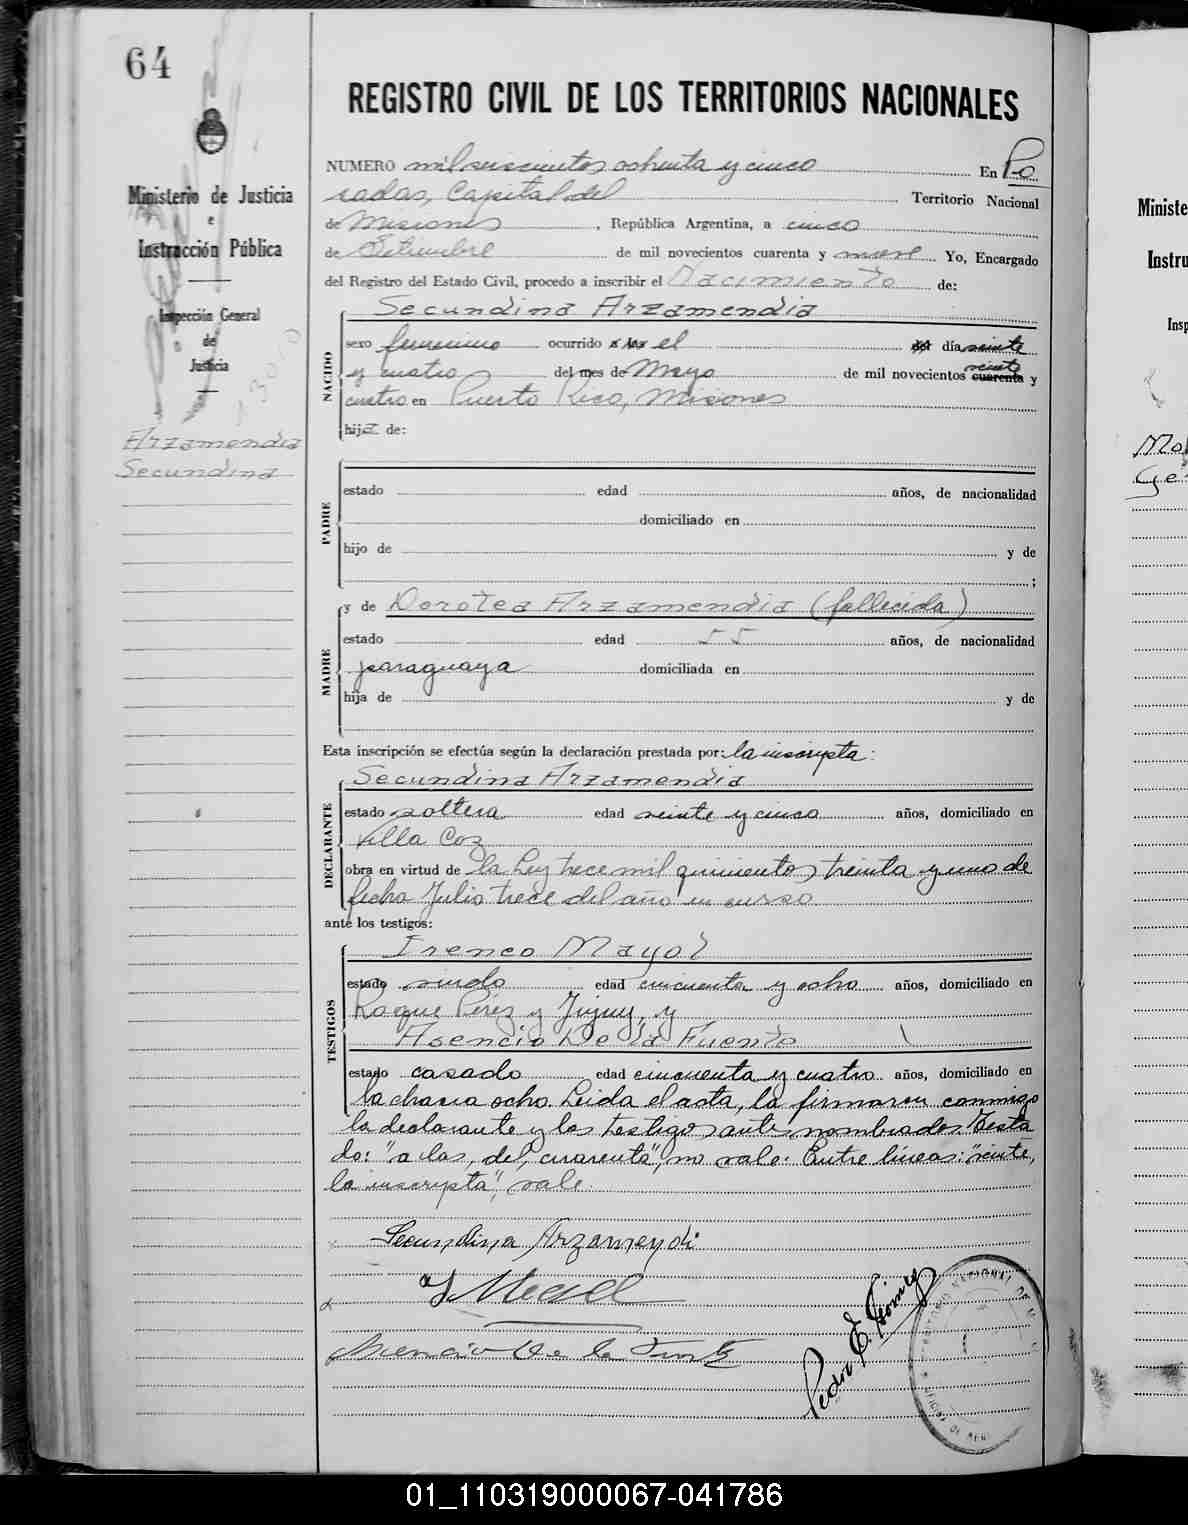 64
REGISTRO CIVIL DE LOS TERRITORIOS NACIONALES
Ministerio de Justicia
e
Instrucción Pública
Inspección General
de
Justicia
Arzamendia
Secundina
NUMERO mil seiscientos ochenta y cinco En Po
sadas, Capital del Territorio Nacional
de Misiones, República Argentina, a cinco
de Setiembre de mil novecientos cuarenta y nueve Yo, Encargado
del Registro del Estado Civil, procedo a inscribir el Nacimiento de:
NACIDO
Secundina Arzamendia
sexo femenino ocurrido a las el del día veinte
y cuatro del mes de Mayo de mil novecientos veinte cuarenta y
cuatro en Puerto Rico, Misiones
hija de:
PADRE
estado edad años, de nacionalidad
domiciliado en
hijo de y de
;
MADRE
y de Dorotea Arzamendia (fallecida)
estado edad 55 años, de nacionalidad
paraguaya domiciliada en
hija de y de
Esta inscripción se efectúa según la declaración prestada por: la inscripta:
DECLARANTE
Secundina Arzamendia
estado soltera edad veinte y cinco años, domiciliado en
Villa Coz
obra en virtud de la Ley trece mil quinientos treinta y uno de
fecha Julio trece del año en curso
ante los testigos:
TESTIGOS
Ireneo Mayol
estado viudo edad cincuenta y ocho años, domiciliado en
Roque Pérez y Jujuy, y
Asencio De la Fuente
estado casado edad cincuenta y cuatro años, domiciliado en
la chacra ocho. Leida el acta, la firmaron conmigo
la declarante y los testigos antes nombrados. Testa
do: "a las, del, cuarenta", no vale. Entre líneas: "veinte,
la inscripta", vale.
Secundina Arzamendi
Asencio De la Fuente
Pedro E.
01_110319000067-041786
Ministe
Instru
Insp